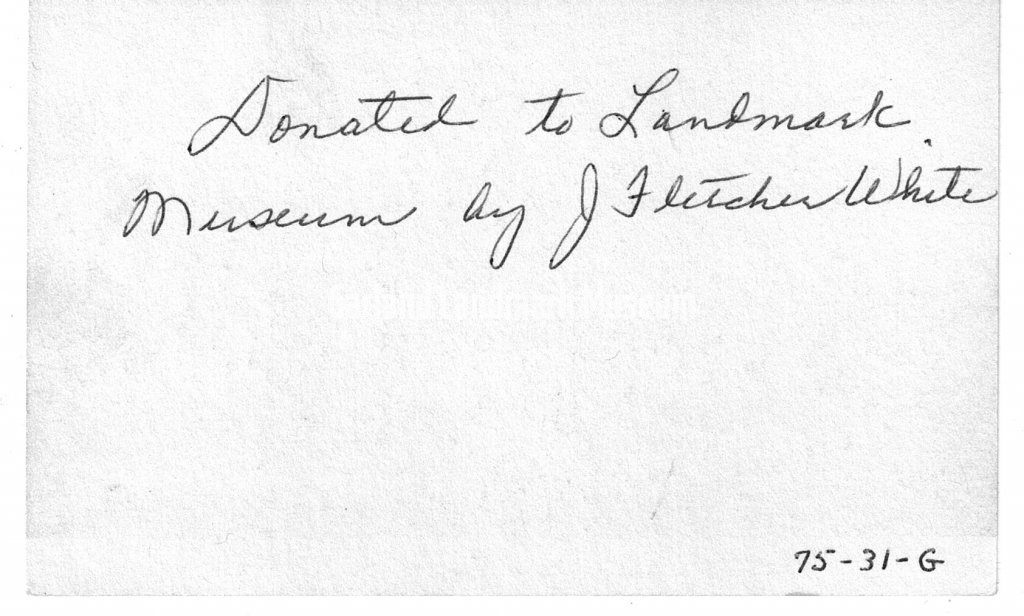 Donated to Landmark
Museum by J Fletcher White
Garland Landmark Museum
75-31-G